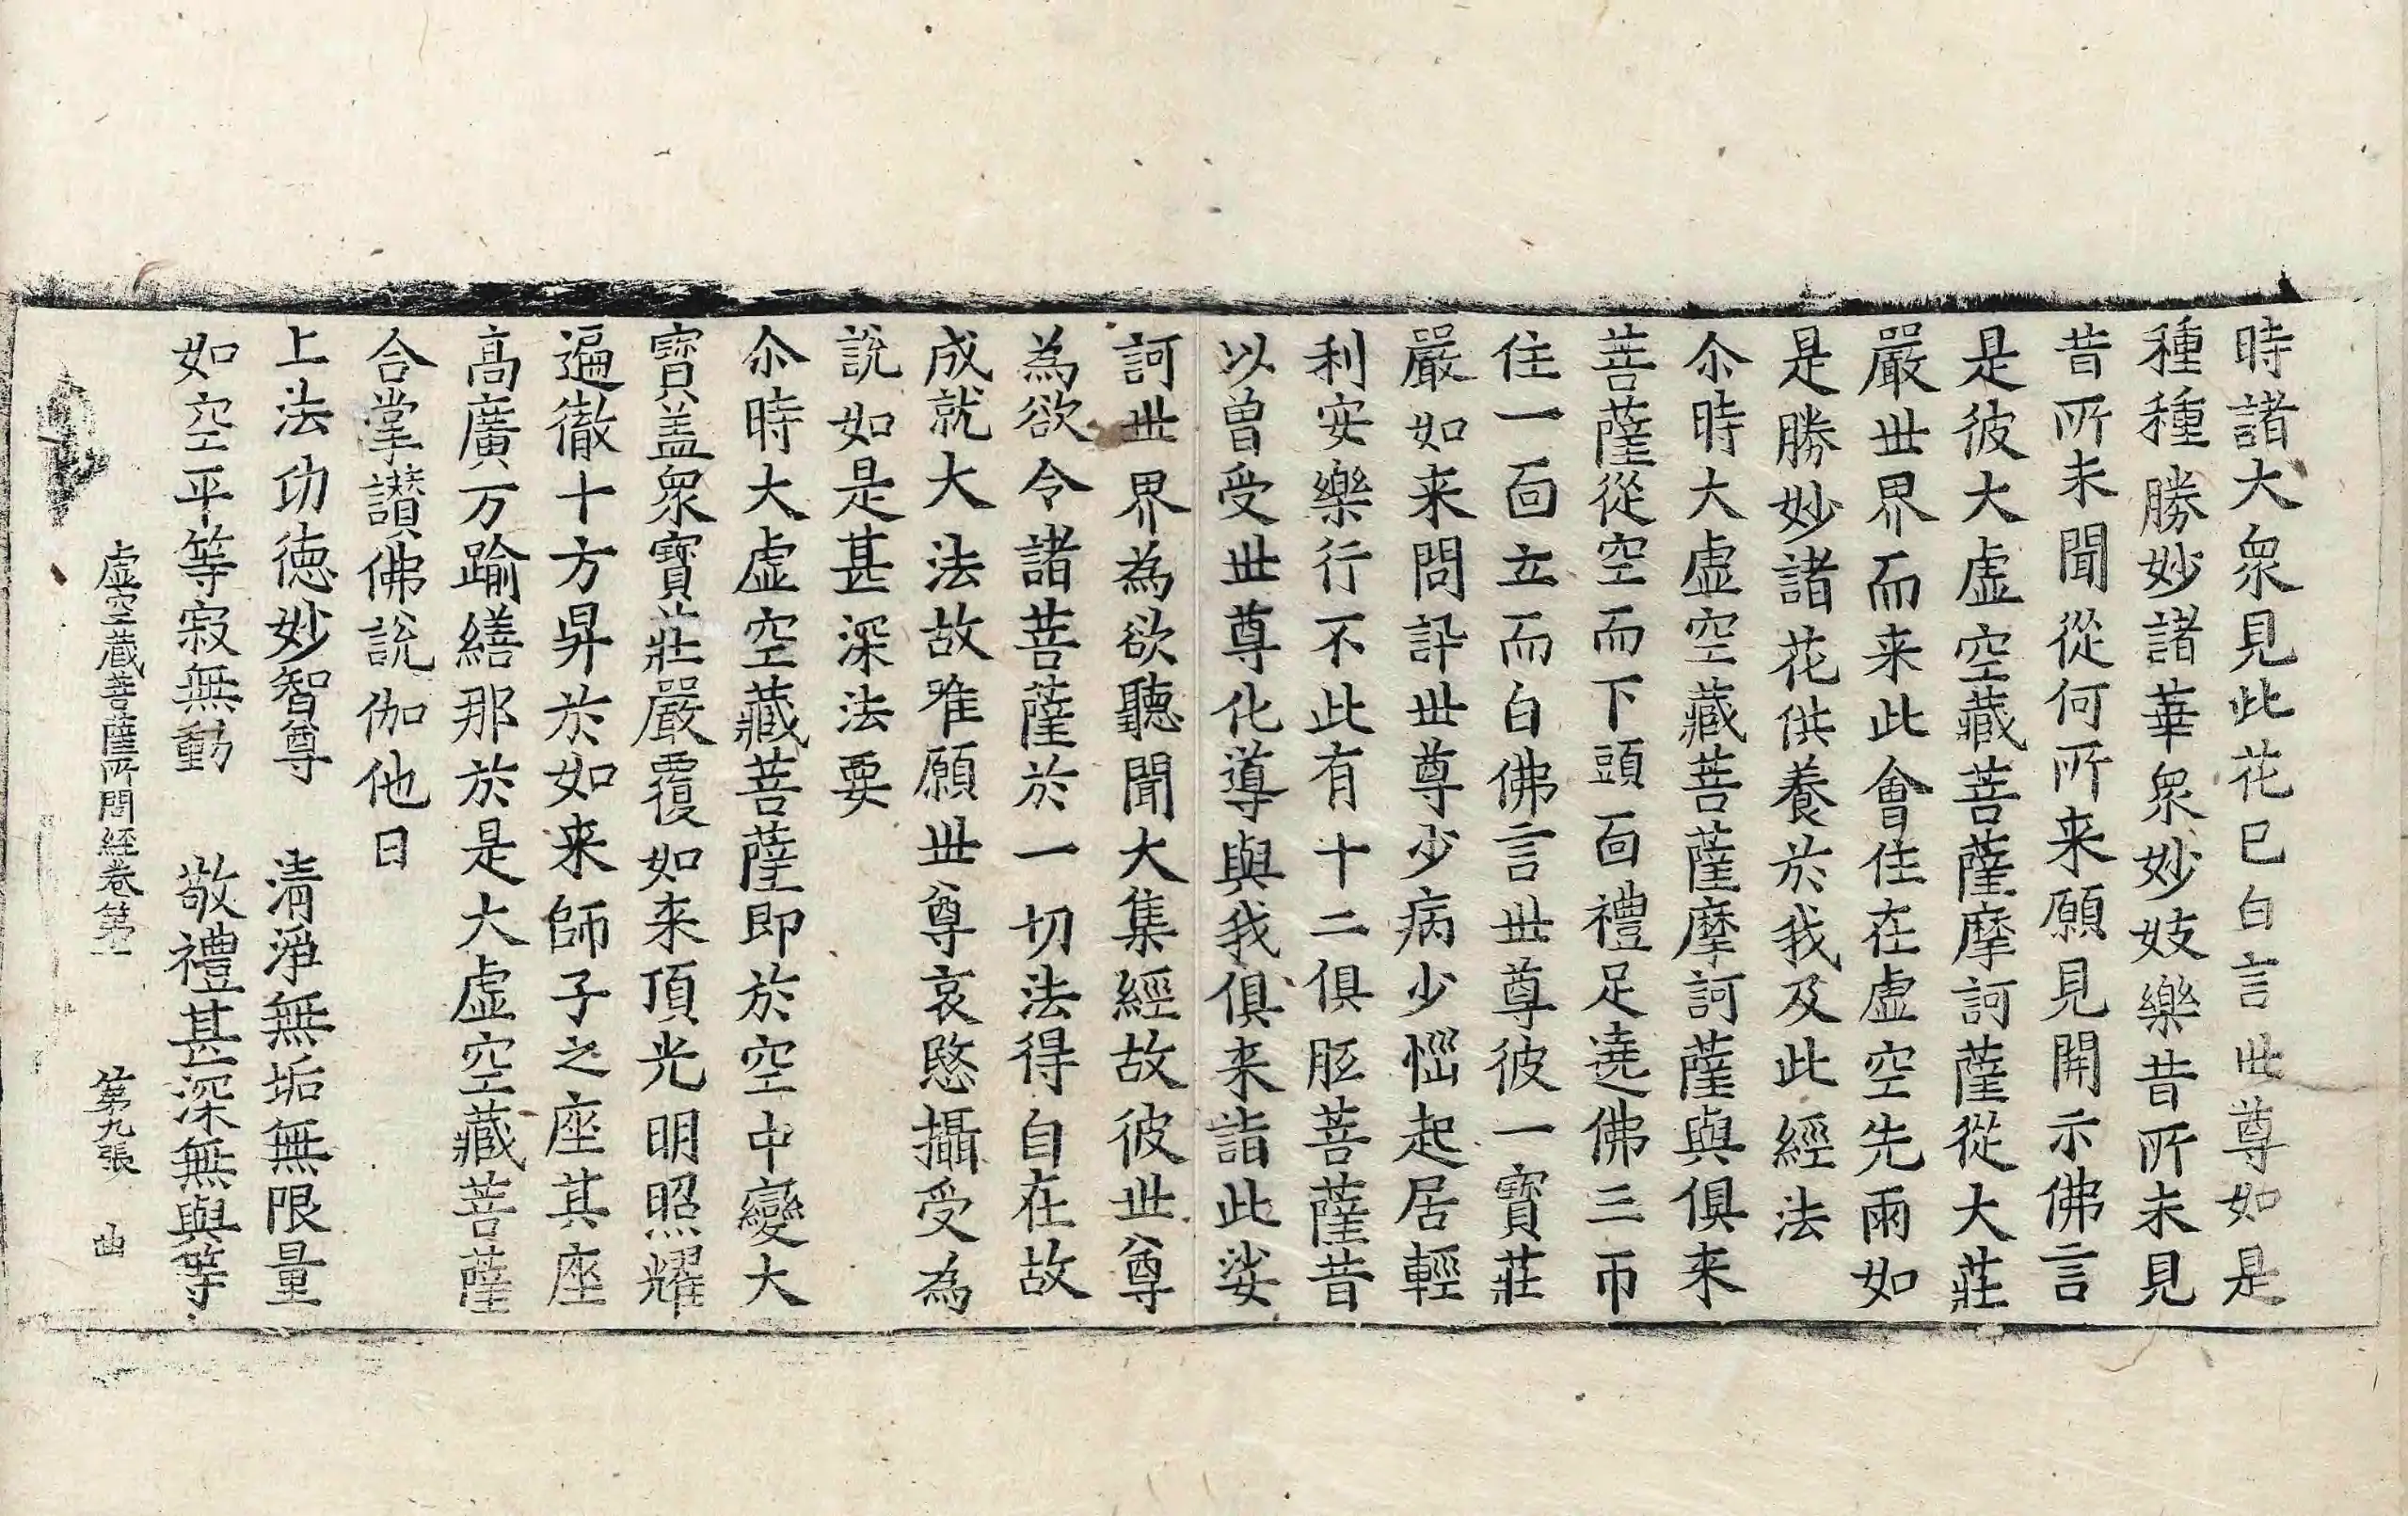 時諸大衆見此花已白言世尊如是
種種勝妙諸華衆妙妓樂昔所未見
昔所未聞從何所来願見開示佛言
是彼大虛空藏菩薩摩訶薩從大莊
嚴世界而来此會住在虛空先雨如
是勝妙諸花供養於我及此經法
尒時大虛空藏菩薩摩訶薩與俱来
菩薩從空而下頭面禮足遶佛三帀
住一面立而白佛言世尊彼一寶莊
嚴如来問訊世尊少病少惱起居輕
利安樂行不此有十二俱胝菩薩昔
以曾受世尊化導與我俱来詣此娑
訶世界為欲聽聞大集經故彼世尊
為欲令諸菩薩於一切法得自在故
成就大法故唯願世尊哀愍攝受為
說如是甚深法要
尒時大虛空藏菩薩即於空中變大
寶盖衆寶莊嚴覆如来頂光明照耀
遍徹十方昇於如来師子之座其座
高廣万踰繕那於是大虛空藏菩薩
合掌讃佛說伽他曰
上法功德妙智尊　清淨無垢無限量
如空平等寂無動　敬禮甚深無與等
虛空藏菩薩所問經卷第一　第九張　曲